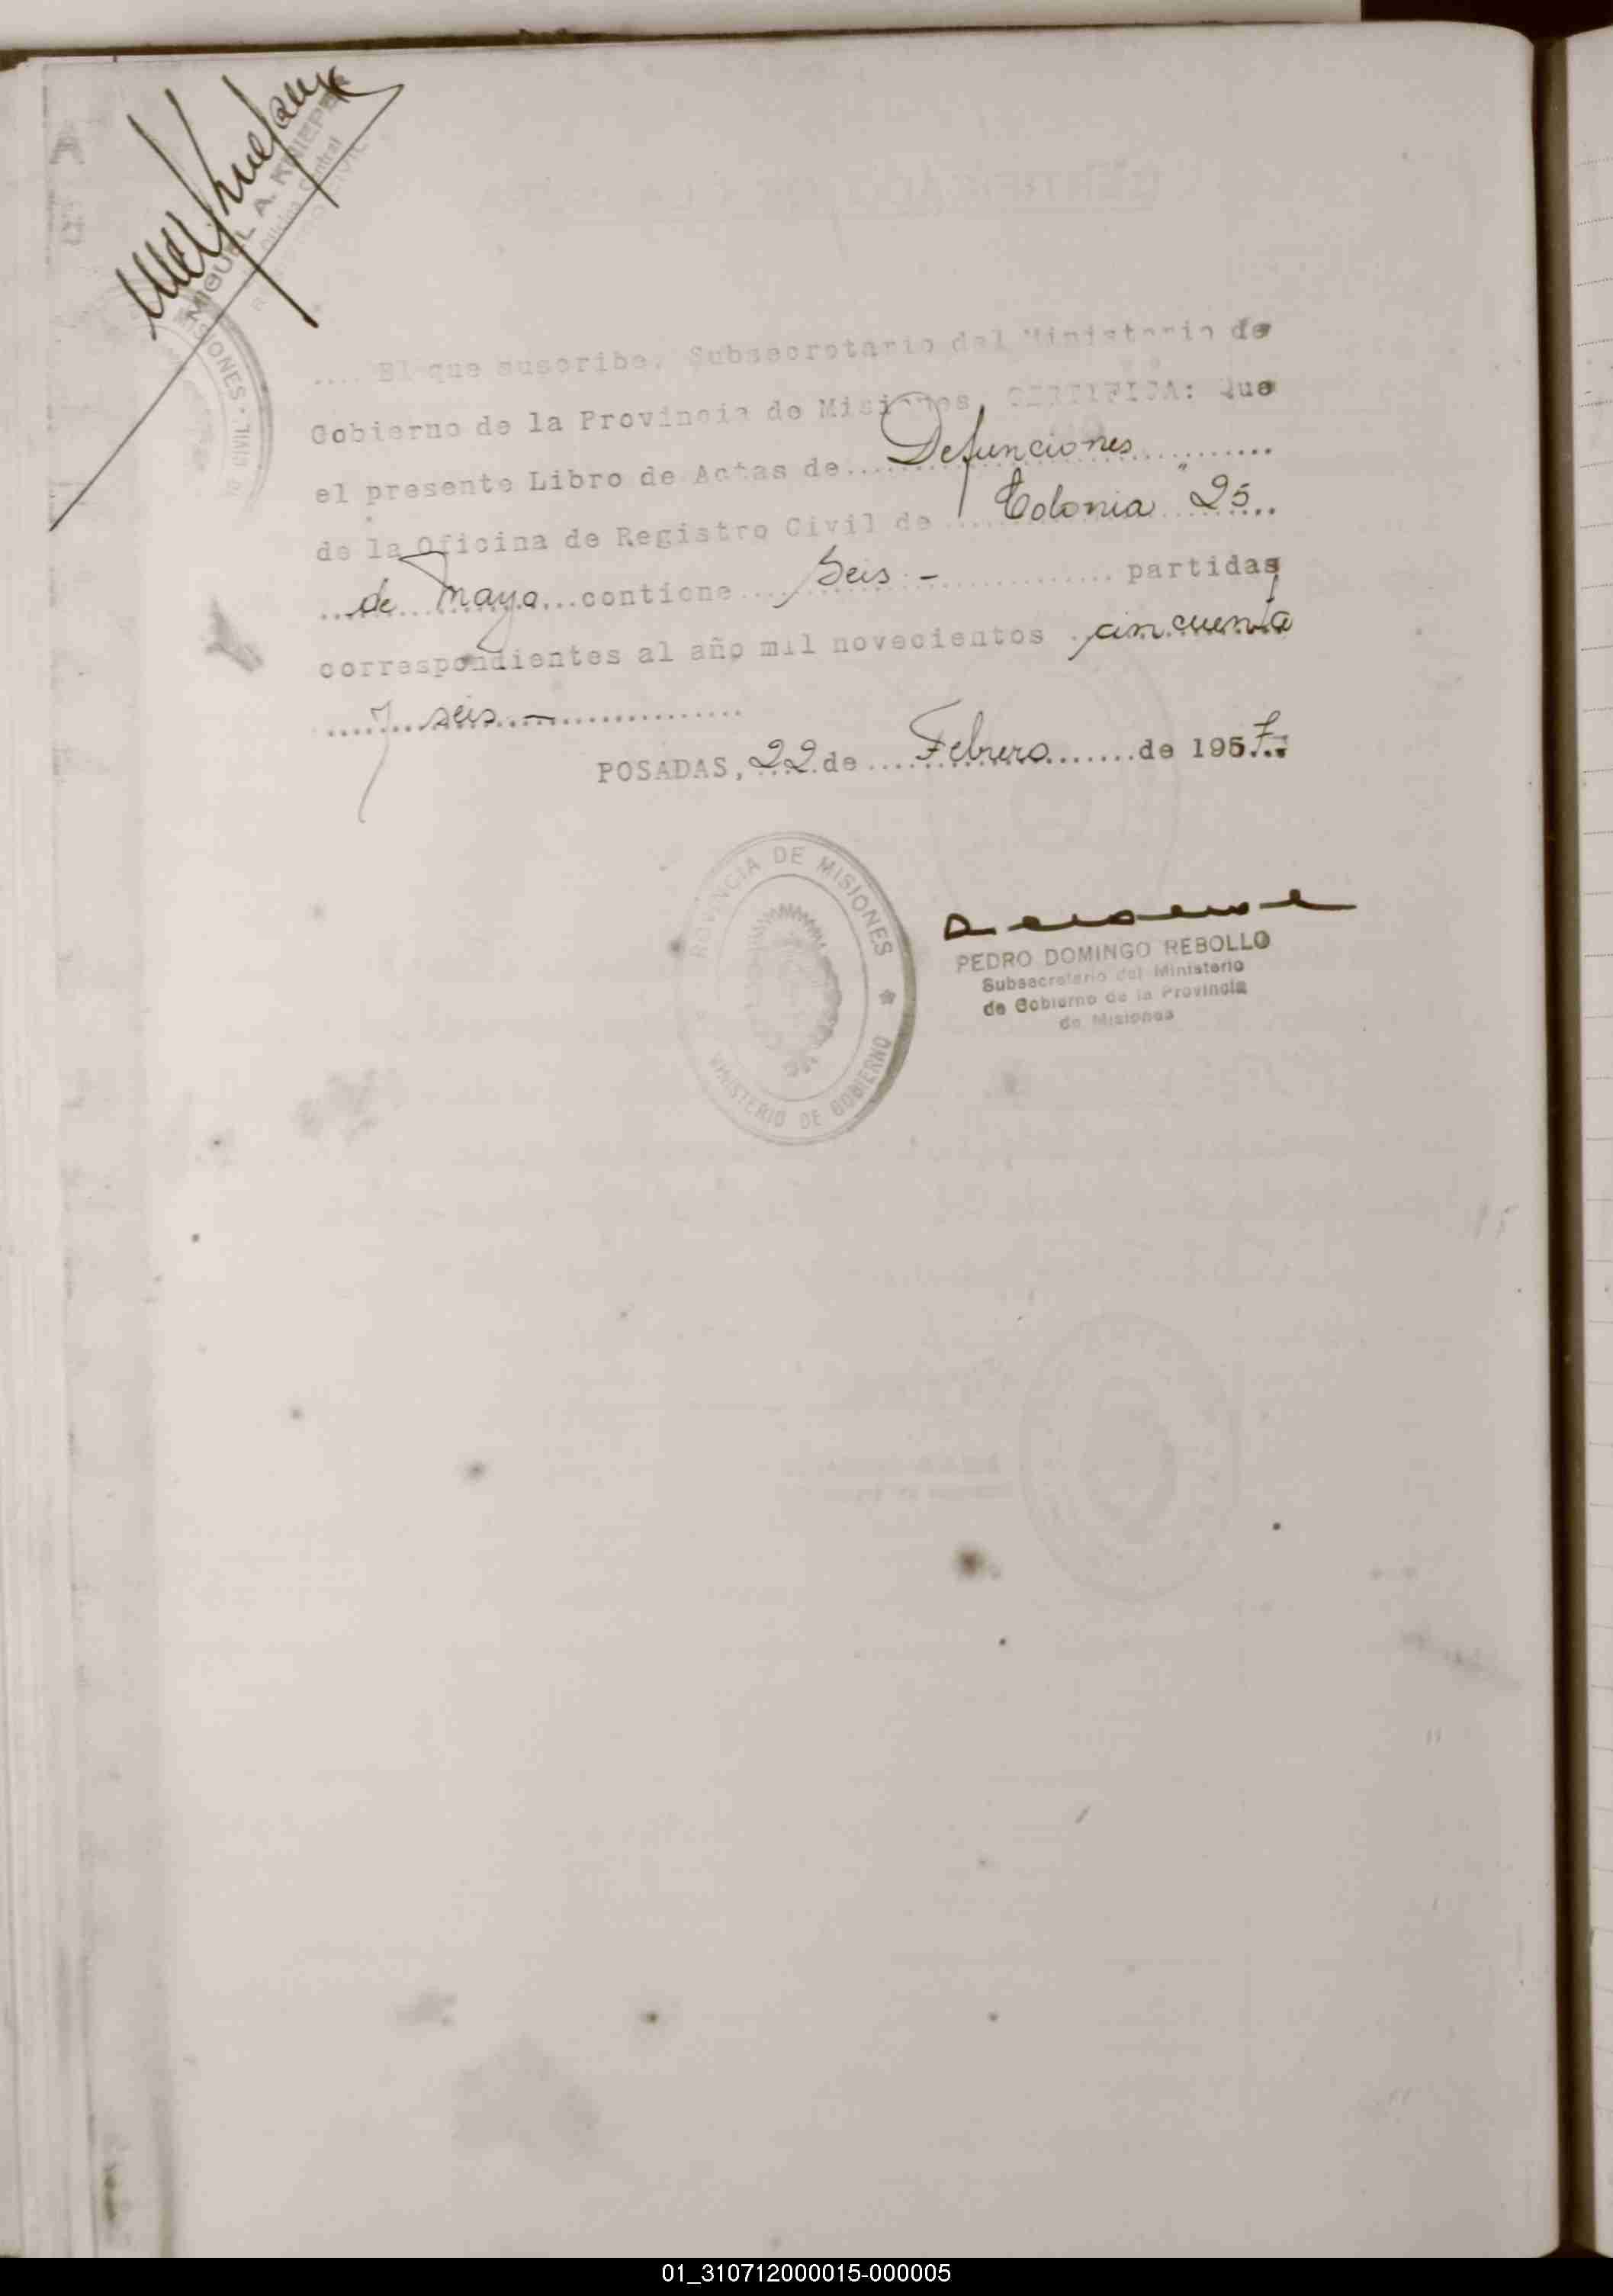 MIGUEL A. KNIEPER
Oficina Central
MISIONES
CIVIL
.... El que suscribe, Subsecretario del Ministerio de
Gobierno de la Provincia de Misiones, CERTIFICA: Que
el presente Libro de Actas de....Defunciones..........
de la Oficina de Registro Civil de ....Colonia "25..
...de...Mayo...contiene....Seis.-............. partidas
correspondientes al año mil novecientos .cincuenta
....y..seis.-...................
POSADAS, 22 de....Febrero.......de 1957.-
PROVINCIA DE MISIONES
MINISTERIO DE GOBIERNO
PEDRO DOMINGO REBOLLO
Subsecretario del Ministerio
de Gobierno de la Provincia
de Misiones
01_310712000015-000005